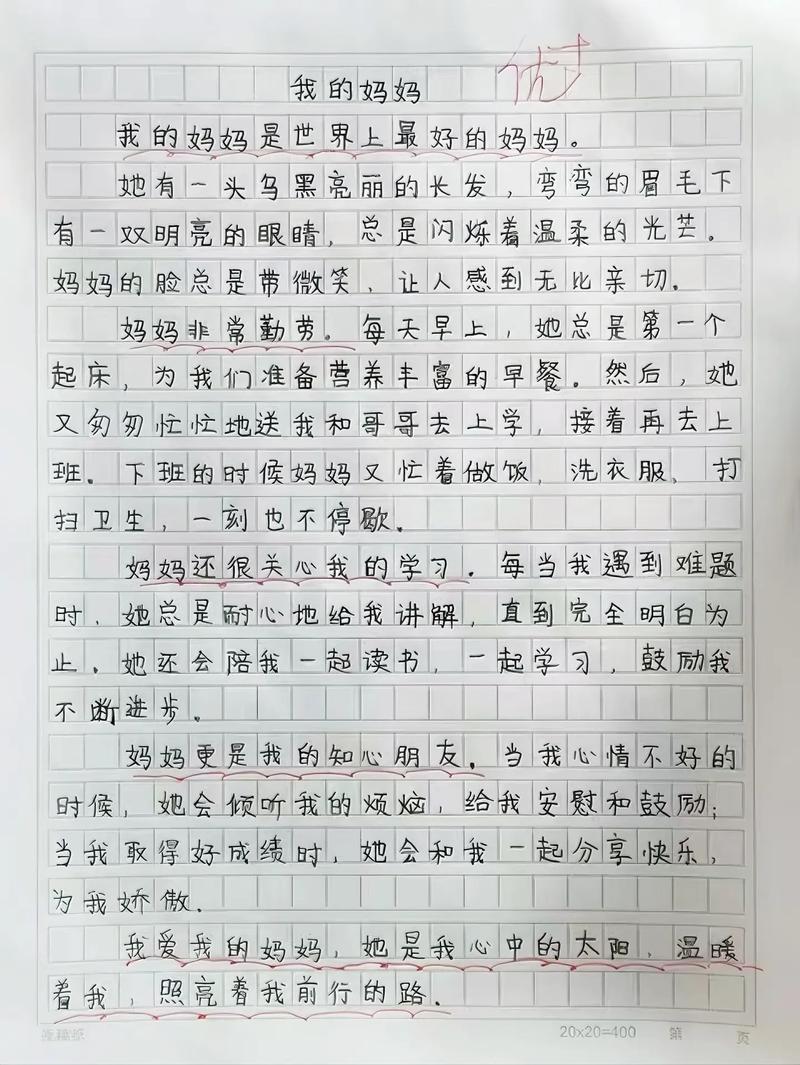 优+
我的妈妈
我的妈妈是世界上最好的妈妈。
她有一头乌黑亮丽的长发，弯弯的眉毛下
有一双明亮的眼睛，总是闪烁着温柔的光芒。
妈妈的脸总是带微笑，让人感到无比亲切。
妈妈非常勤劳。每天早上，她总是第一个
起床，为我们准备营养丰富的早餐。然后，她
又匆匆忙忙地送我和哥哥去上学，接着再去上
班。下班的时候妈妈又忙着做饭，洗衣服、打
扫卫生，一刻也不停歇。
妈妈还很关心我的学习。每当我遇到难题
时，她总是耐心地给我讲解，直到完全明白为
止。她还会陪我一起读书，一起学习，鼓励我
不断进步。
妈妈更是我的知心朋友。当我心情不好的
时候，她会倾听我的烦恼，给我安慰和鼓励；
当我取得好成绩时，她会和我一起分享快乐，
为我娇傲。
我爱我的妈妈，她是我心中的太阳，温暖
着我，照亮着我前行的路。
20x20=400 第 页